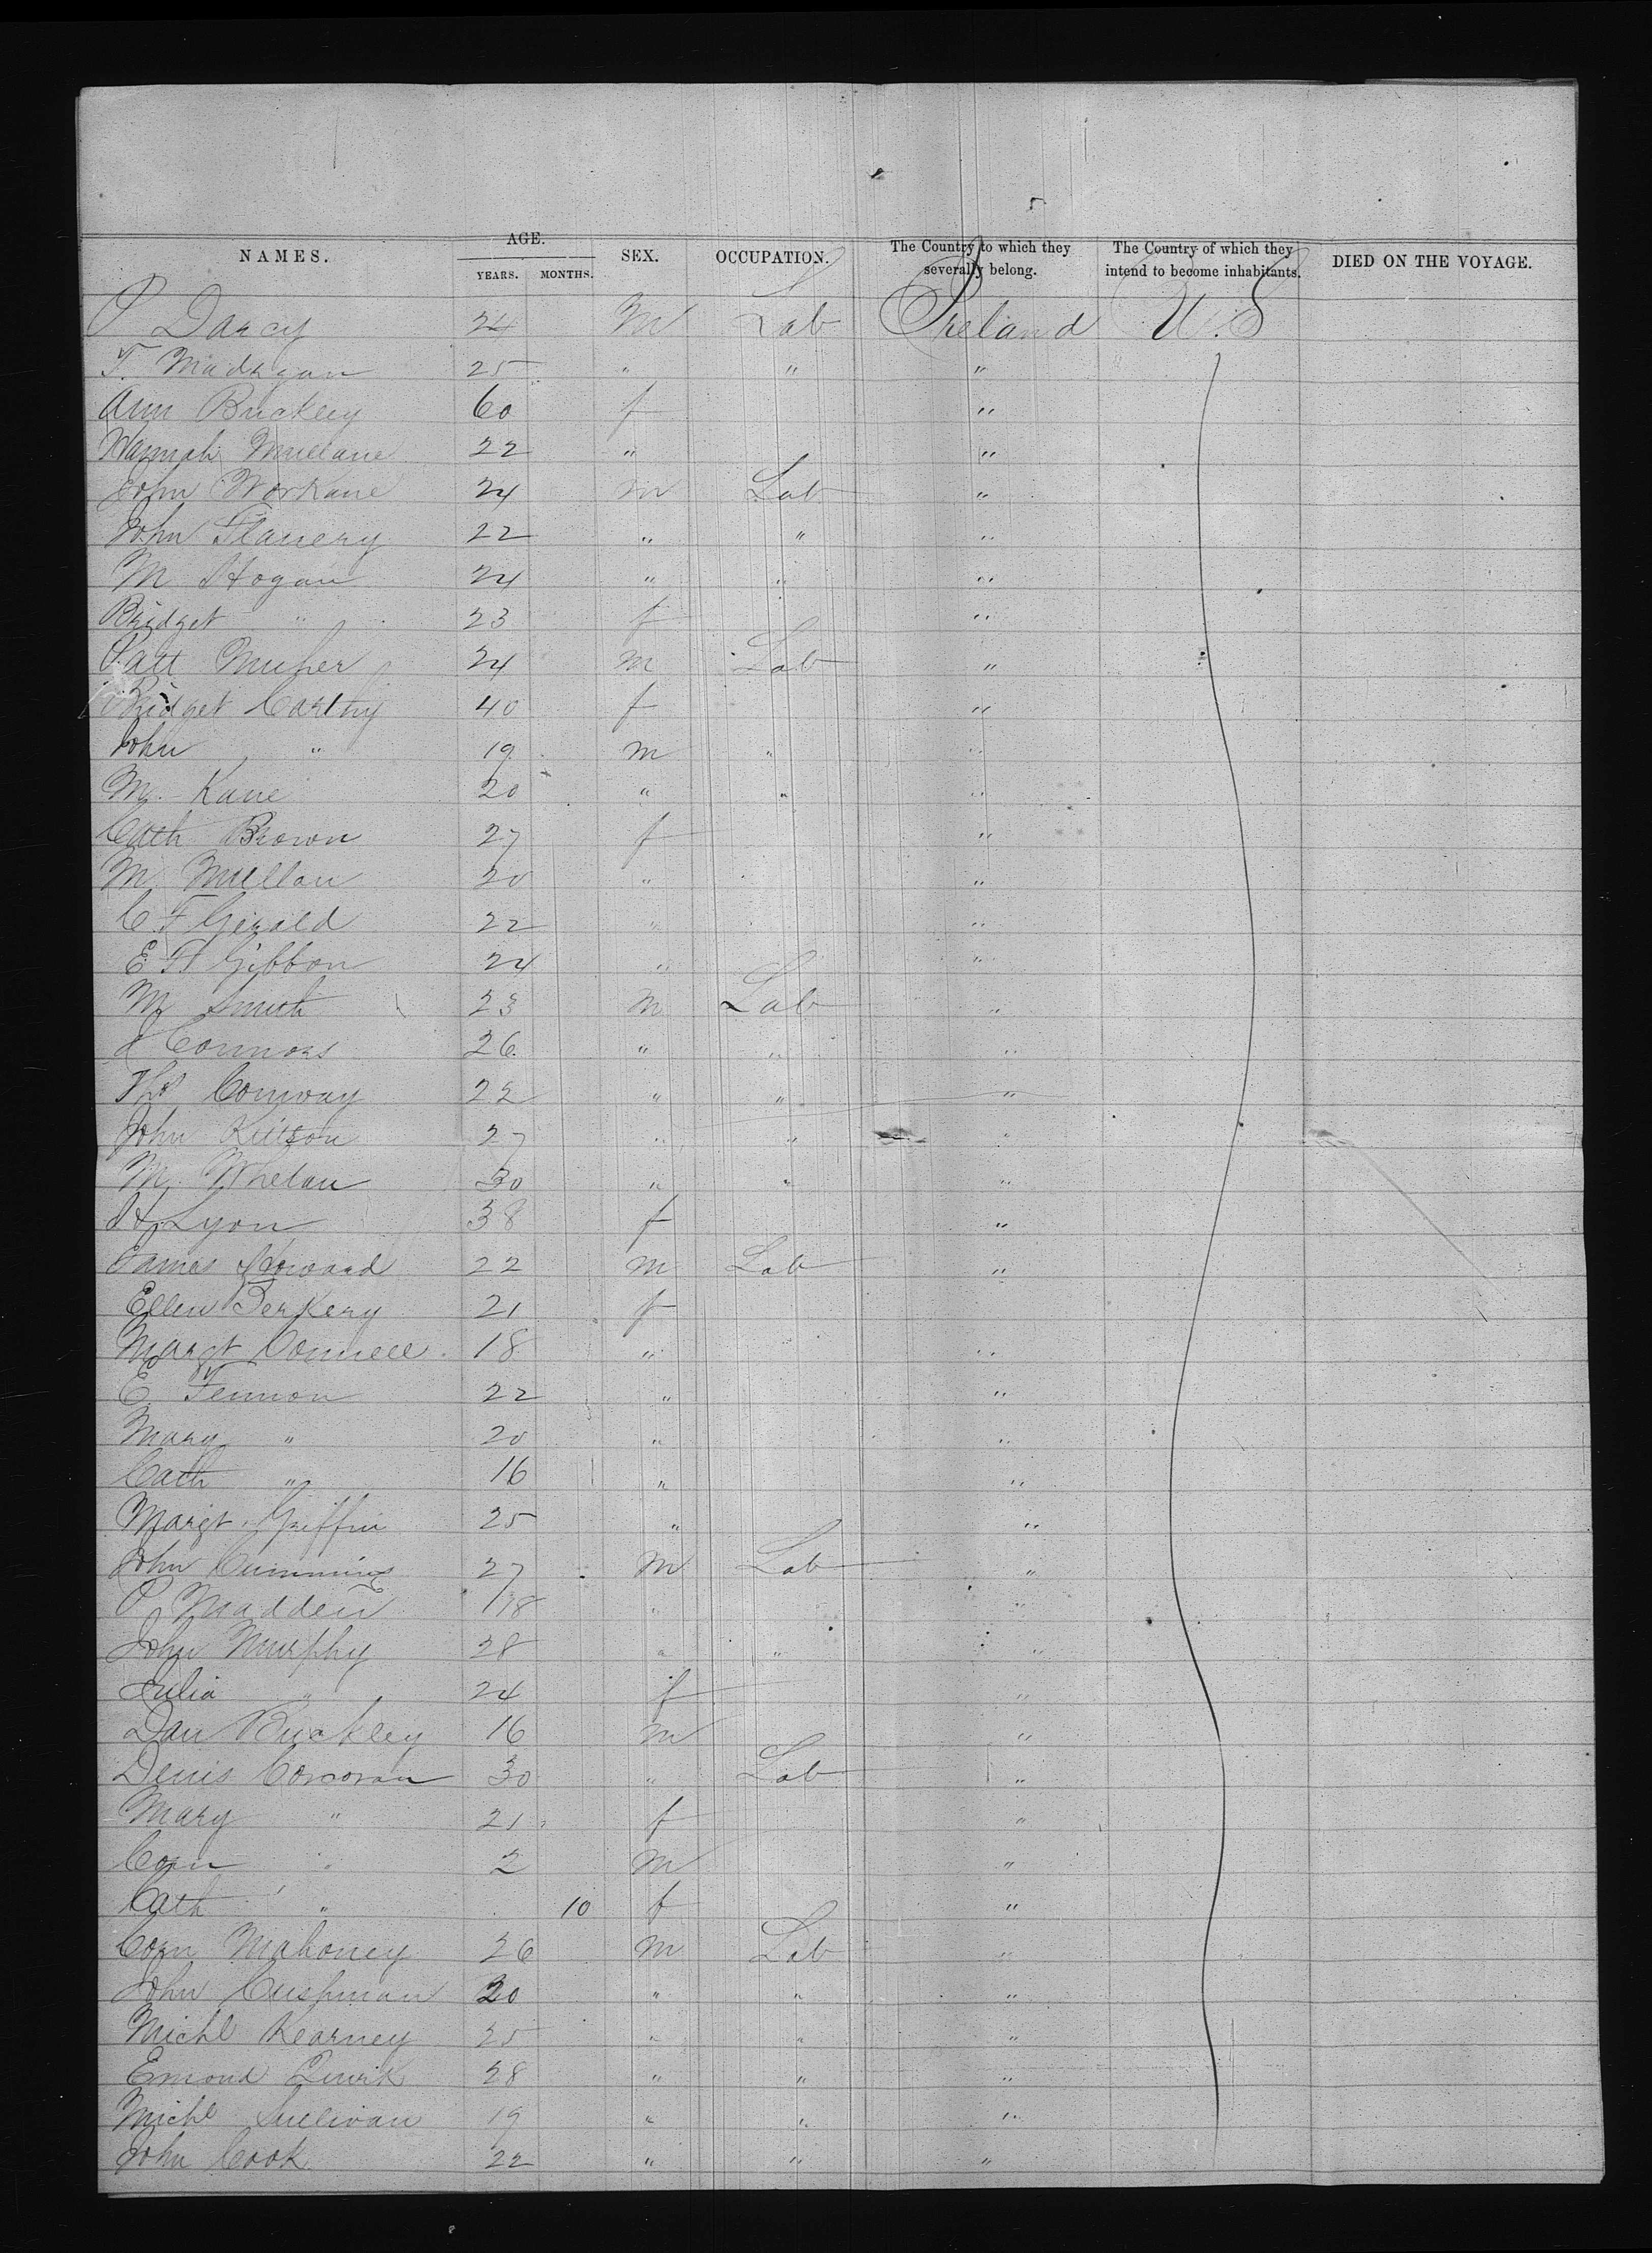 NAMES. AGE. YEARS. MONTHS. SEX. OCCUPATION. The Country to which they severally belong. The Country of which they intend to become inhabitants. DIED ON THE VOYAGE.
P Darcy 24 M Lab Ireland U.S
T. Madigan 25 " " "
Ann Buckley 60 f "
Hannah Mullane 22 " "
John 24 m Lab "
John Flanery 22 " " "
M Hogan 24 " " "
Bridget " 23 f "
Patt 24 m Lab "
Bridget Carthy 40 f "
John " 19 m " "
M. Kane 20 " " "
Cath Brown 27 f "
M. Mullan 20 " "
C. F Gerald 22 " "
E. Ft Gibbon 24 " "
M Smith 23 m Lab "
J Connors 26 " " "
Ths Conway 22 " " "
John 27 " " "
M. Whelan 30 " " "
H. Lyon 38 f "
James Howard 22 m Lab "
Ellen Berkery 21 f "
Margt Connell 18 " "
E Fennon 22 " "
Mary " 20 " "
Cath " 16 " "
Margt Griffin 25 " "
John Cummins 27 m Lab "
P Madden 18 " "
John Murphy 28 " " "
Julia " 24 f "
Dan Buckley 16 m "
Denis Corcoran 30 " Lab "
Mary " 21 f "
Corn " 2 m "
Cath " 10 f "
Corn Mahoney 26 m Lab "
John Cushman 20 " " "
Michl Kearney 25 " " "
Emond Quirk 28 " " "
Michl Sullivan 19 " " "
John Cook 22 " " "